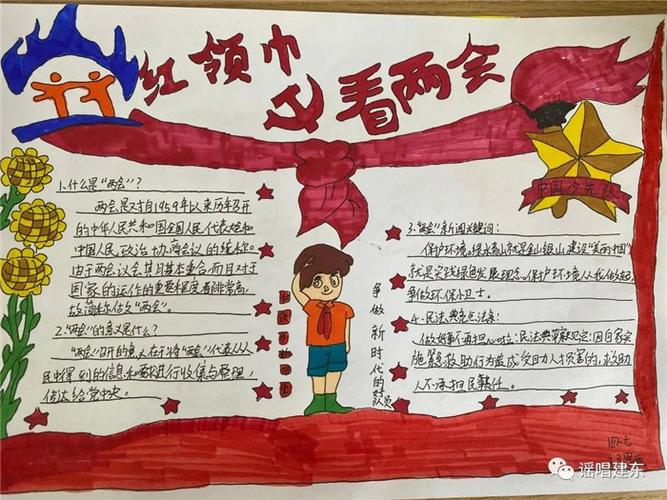 红领巾看两会
中国少先队
1.什么是"两会"?
两会是对自1959年以来历年召开
的中华人民共和国全国人民代表大会和
中国人民政治协商会议的统称。
由于两会议会其月基本重合,而且对于
国家的运作的重要程度看非常高,
故简称做"两会"。
2."两会"的意义是什么?
"两会"召开的意义在于将"两会"代表从人
民中得到的信息和要求进行收集与整理,
传达给党中央。
争做新时代的好队员
3."两会"新闻关键词:
保护环境。绿水青山就是金山银山,建设"美丽中国"
就是实践绿色发展理念。保护环境从我做起
争做环保小卫士。
4.民法典亮点法条:
做好事不再担心啦:民法典草案规定:因自愿实
施紧急救助行为造成受助人损害的,救助
人不承担民事责任。
四七
谣唱建东